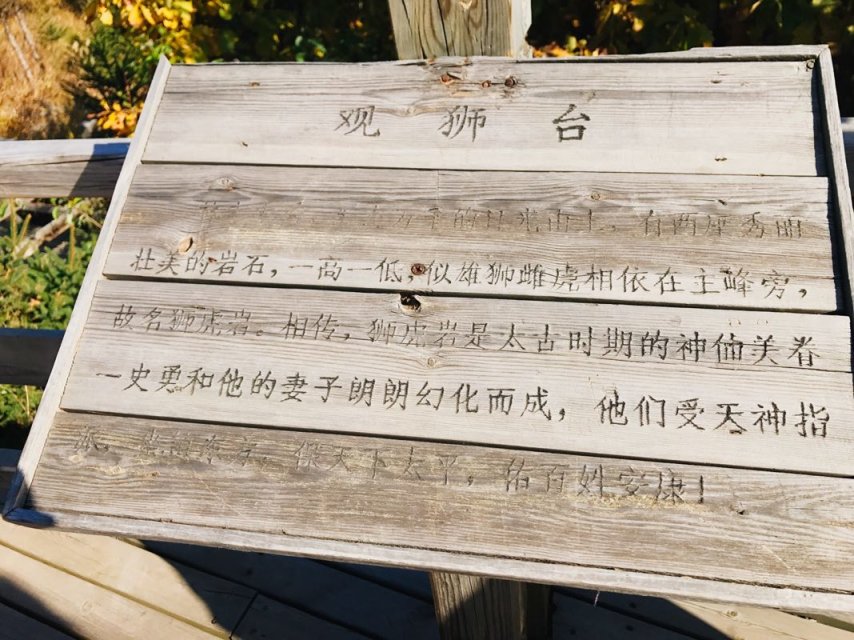 观狮台
的日光山上，有两座秀丽
壮美的岩石，一高一低，似雄狮雌虎相依在主峰旁，
故名狮虎岩。相传，狮虎岩是太古时期的神仙美眷
一史勇和他的妻子朗朗幻化而成，他们受天神指
派，保天下太平，佑百姓安康！